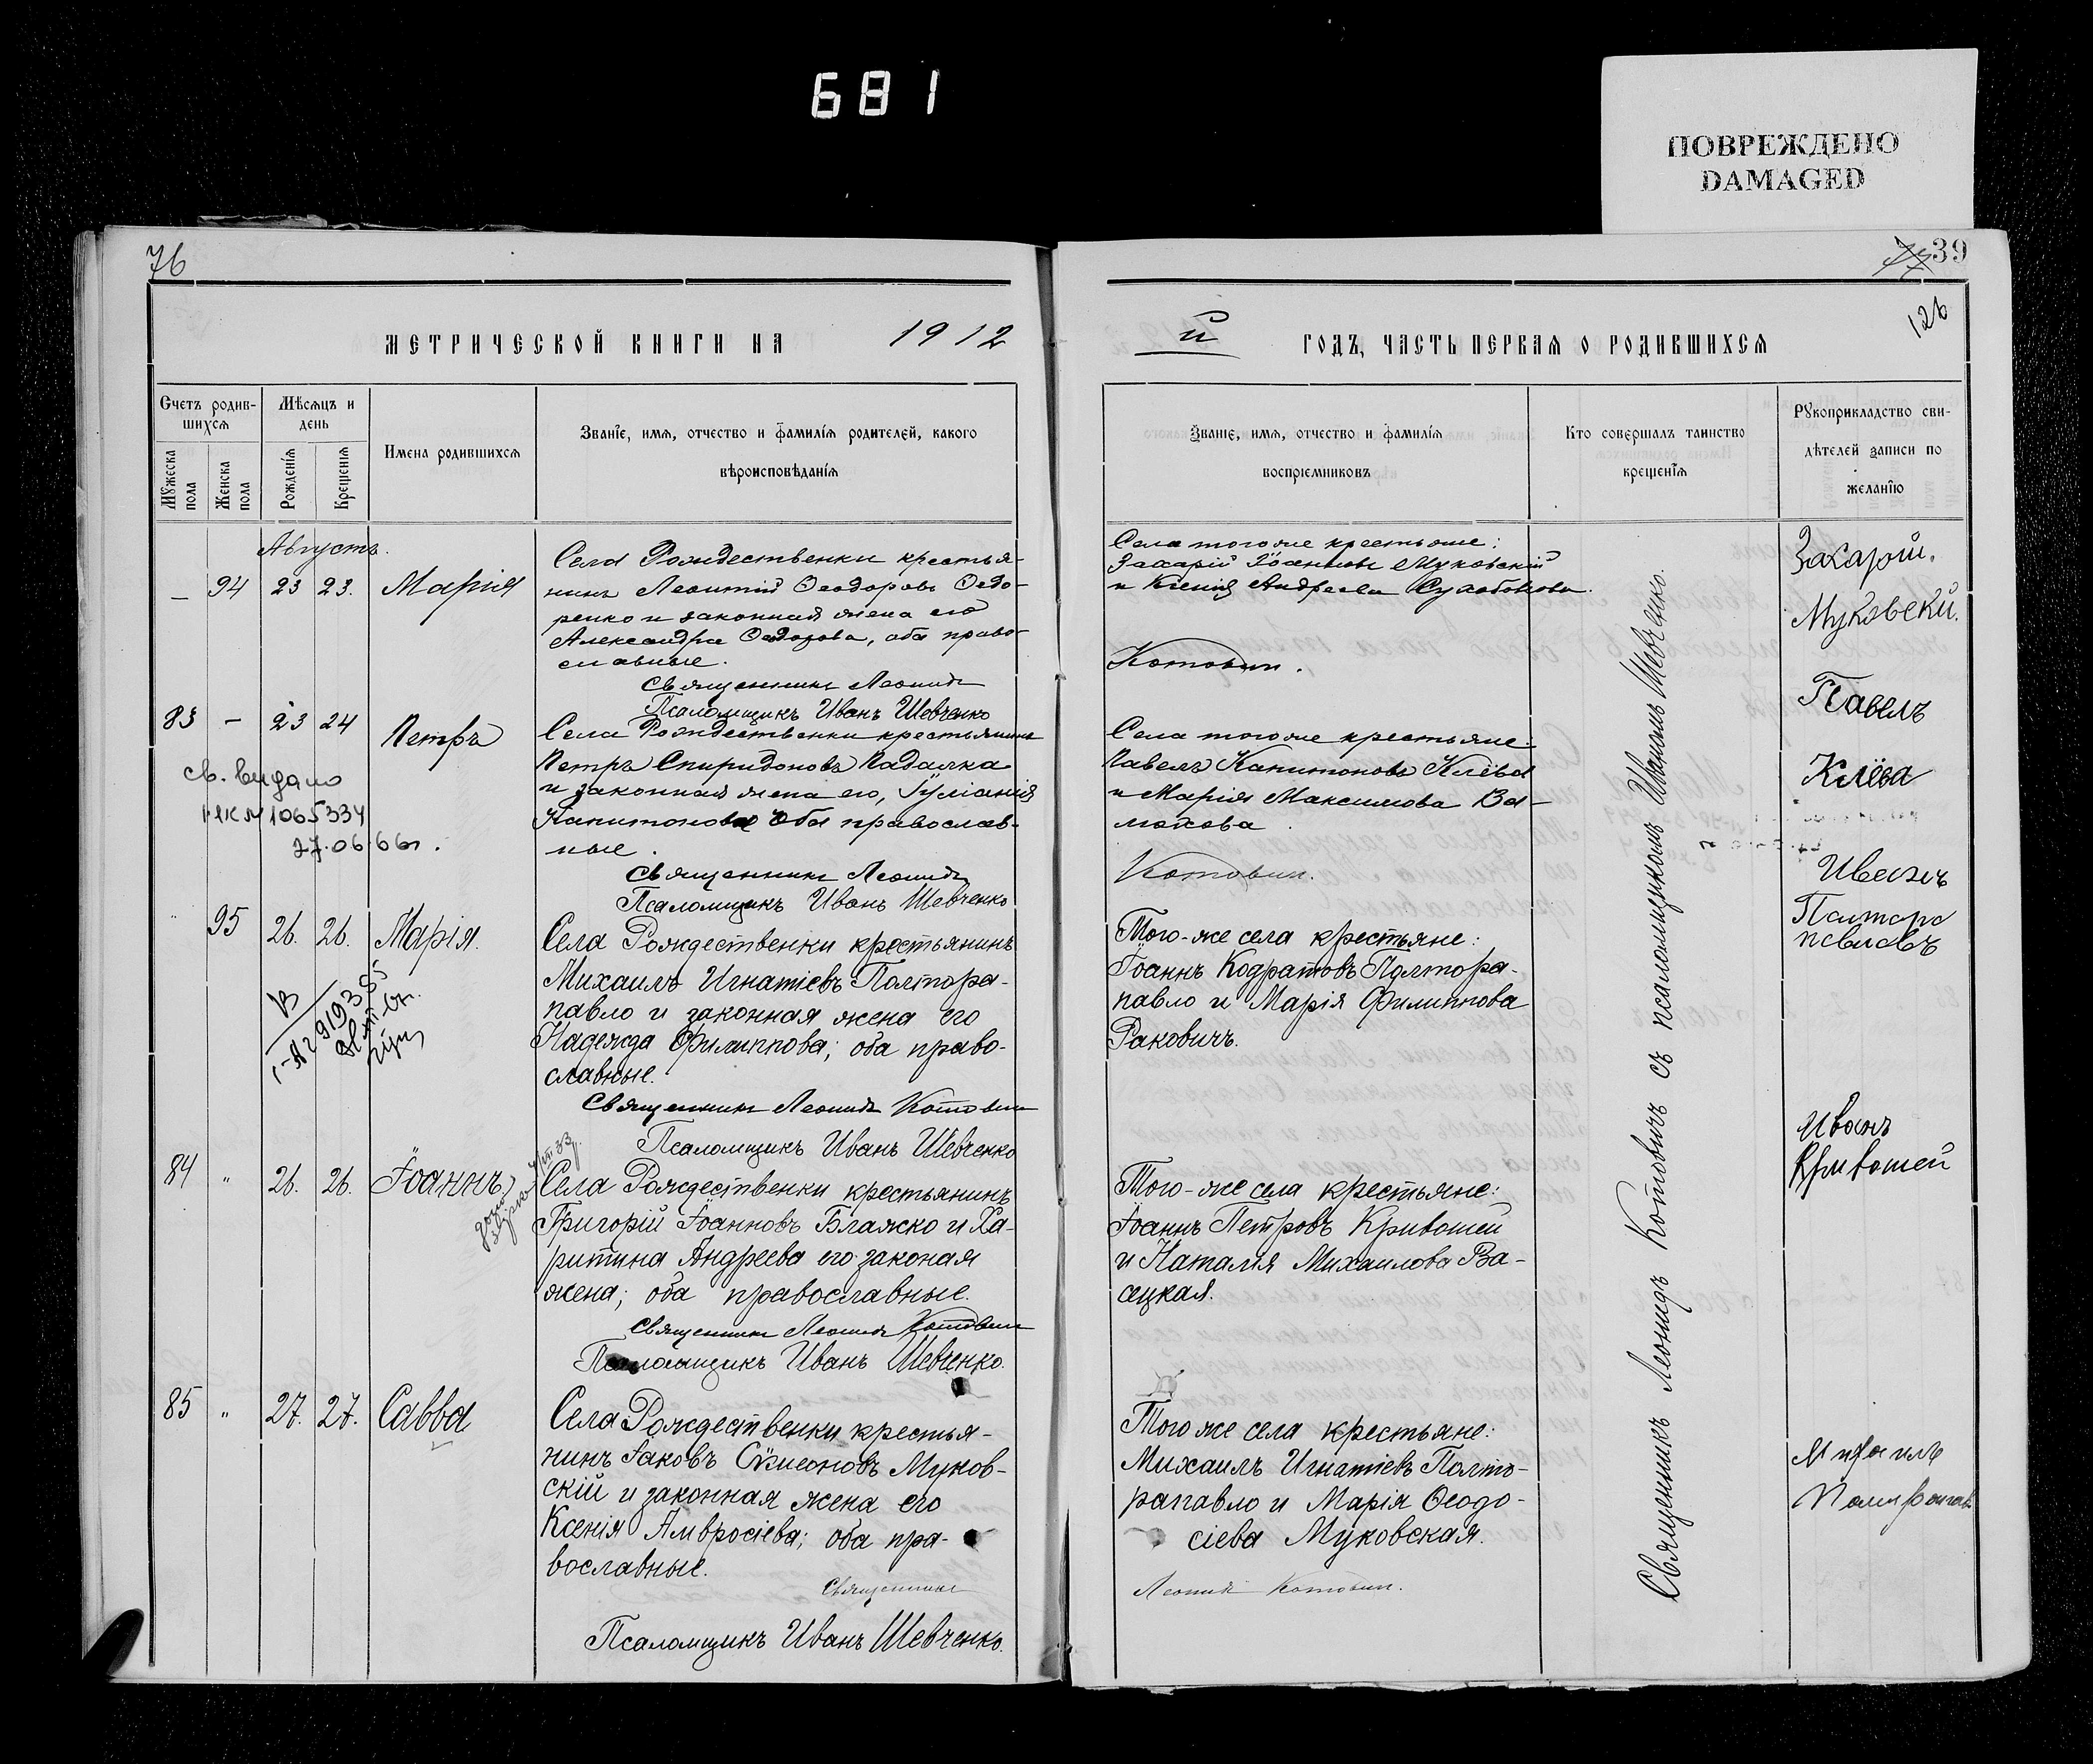 681
ПОВРЕЖДЕНО
DAMAGED
76
39
126
МЕТРИЧЕСКОЙ КНИГИ НА 1912
й ГОДЪ, ЧАСТЬ ПЕРВАЯ О РОДИВШИХСЯ
Счетъ родив-
шихся
Мужеска пола
Женска пола
Мѣсяцъ и
день
Рожденїя
Крещенїя
Имена родившихся
Званїе, имя, отчество и фамилїя родителей, какого
вѣроисповѣданїя
Званїе, имя, отчество и фамилїя
воспрїемниковъ
Кто совершалъ таинство
крещенїя
Рукоприкладство сви-
дѣтелей записи по
желанїю
Августъ.
– 94 23 23. Марія
Села Рождественки крестья-
нинъ Леонтій Ѳеодоровъ Ѳедо-
ренко и законная жена его
Александра Ѳеодорова, оба право-
славные.
Священникъ Леонидъ
Псаломщикъ Иванъ Шевченко
Села того же крестьяне:
Захарій Іоанновъ Муковскій
и Ксенія Андреева
Котовичъ.
Захарій.
Муковски.
83 – 23 24 Петръ
св. видано
1065334
27.06.66г.
Села Рождественки крестьянинъ
Петръ Спиридоновъ Падалка
и законная жена его, Іуліанія
Капитонова оба православ-
ные.
Священникъ Леонидъ
Псаломщикъ Иванъ Шевченко
Села того же крестьяне:
Павелъ Капитоновъ Клёва
и Марія Максимова Ва-
Котовичъ.
Павелъ
Клёва
" 95 26. 26. Марія.
Села Рождественки крестьянинъ
Михаилъ Игнатіевъ Полтора-
павло и законная жена его
Надежда Филиппова; оба право-
славные.
Священникъ Леонидъ Котовичъ
Псаломщикъ Иванъ Шевченко
Того-же села крестьяне:
Іоаннъ Кодратовъ Полтора-
павло и Марія Филиппова
Раковичъ.
84 " 26. 26. Іоаннъ
Села Рождественки крестьянинъ
Григорій Іоанновъ Блажко и Ха-
ритина Андреева его законая
жена; оба православные.
Священникъ Леонидъ Котовичъ
Псаломщикъ Иванъ Шевченко.
Того-же села крестьяне:
Іоаннъ Петровъ Кривошей
и Наталія Михаилова Ва-
сецкая.
Иванъ
Кривошей
85 " 27. 27. Савва
Села Рождественки крестья-
нинъ Іаковъ Сѵмеоновъ Муков-
скій и законная жена его
Ксенія Амвросіева; оба пра-
вославные.
Священникъ
Псаломщикъ Иванъ Шевченко.
Того же села крестьяне:
Михаилъ Игнатіевъ Полто-
рапавло и Марія Ѳеодо-
сіева Муковская.
Леонидъ Котовичъ.
Священникъ Леонидъ Котовичъ съ псаломщикомъ Иваномъ Шевченко.